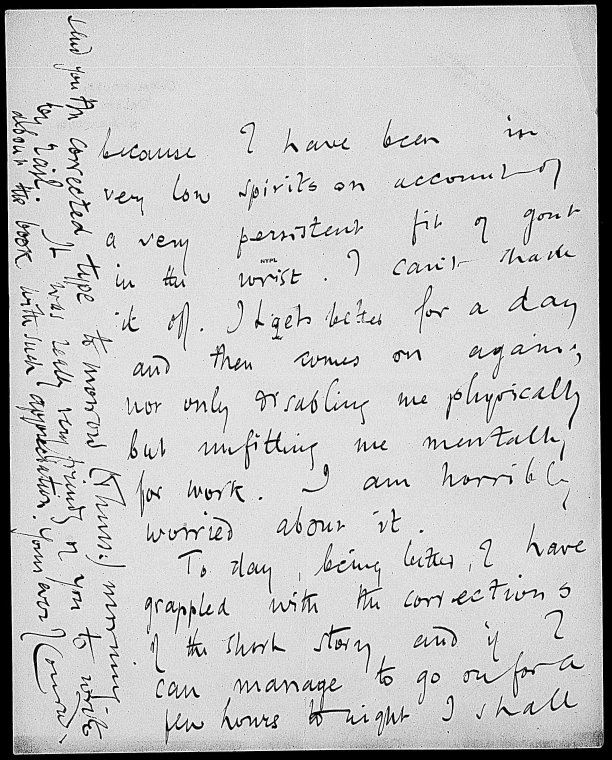 because I have been in
very low spirits on account of
a very persistent fit of gout
in the wrist. I can't shake
it off. It gets better for a day
and then comes on again;
not only disabling me physically
but unfitting me mentally
for work. I am horribly
worried about it.
To day, being better, I have
grappled with the corrections
of the short story and if I
can manage to go on for a
few hours to night I shall
send you the corrected type to morrow (Thurs.) morning
by rail. It was really very friendly of you to write
about the book with such appreciation. Yours ever J Conrad.